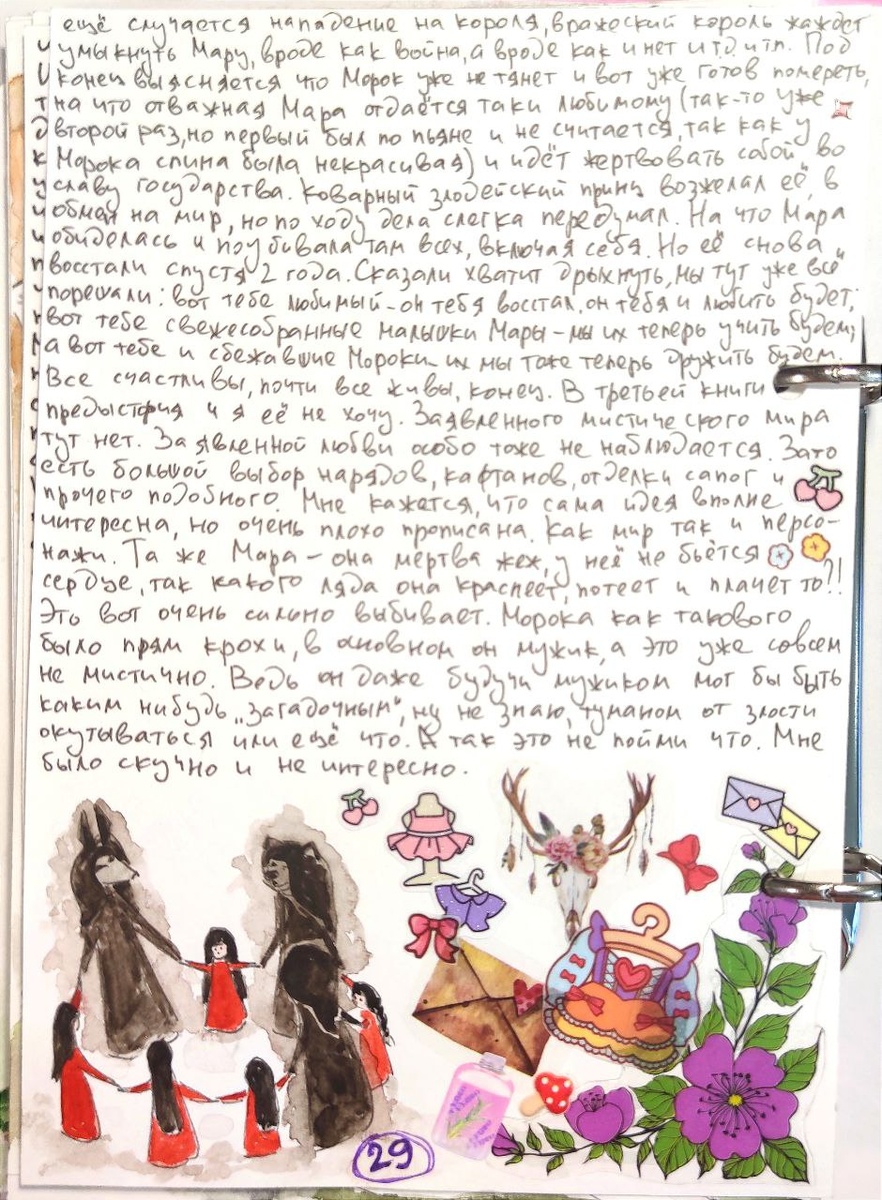 ещё случается нападение на короля, вражеский король жаждет
умыкнуть Мару, вроде как война, а вроде как и нет и т.д. и т.п. Под
конец выясняется что Морок уже не тянет и вот уже готов помереть,
на что отважная Мара отдаётся таки любимому (так-то уже
второй раз, но первый был по пьяне и не считается, так как у
Морока спина была некрасивая) и идёт жертвовать собой во
славу государства. Коварный злодейский принц возжелал её, в
обмен на мир, но по ходу дела слегка передумал. На что Мара
обиделась и поубивала там всех, включая себя. Но её снова
восстали спустя 2 года. Сказали хватит дрыхнуть, мы тут уже всё
порешали: вот тебе любимый - он тебя восстал, он тебя и любить будет;
вот тебе свежесобранные малышки Мары - мы их теперь учить будем;
а вот тебе и сбежавшие Мороки - их мы тоже теперь дружить будем.
Все счастливы, почти все живы, конец. В третьей книги
предыстория и я её не хочу. Заявленного мистического мира
тут нет. Заявленной любви особо тоже не наблюдается. Зато
есть большой выбор нарядов, кафтанов, отделки сапог и
прочего подобного. Мне кажется, что сама идея вполне
интересна, но очень плохо прописана. Как мир так и персо-
нажи. Та же Мара - она мертва жеж, у неё не бьётся
сердце, так какого ляда она краснеет, потеет и плачет то?!
Это вот очень сильно выбивает. Морока как такового
было прям крохи, в основном он мужик, а это уже совсем
не мистично. Ведь он даже будучи мужиком мог бы быть
каким нибудь „загадочным“, ну не знаю, туманом от злости
окутываться или ещё что. А так это не пойми что. Мне
было скучно и не интересно.
29